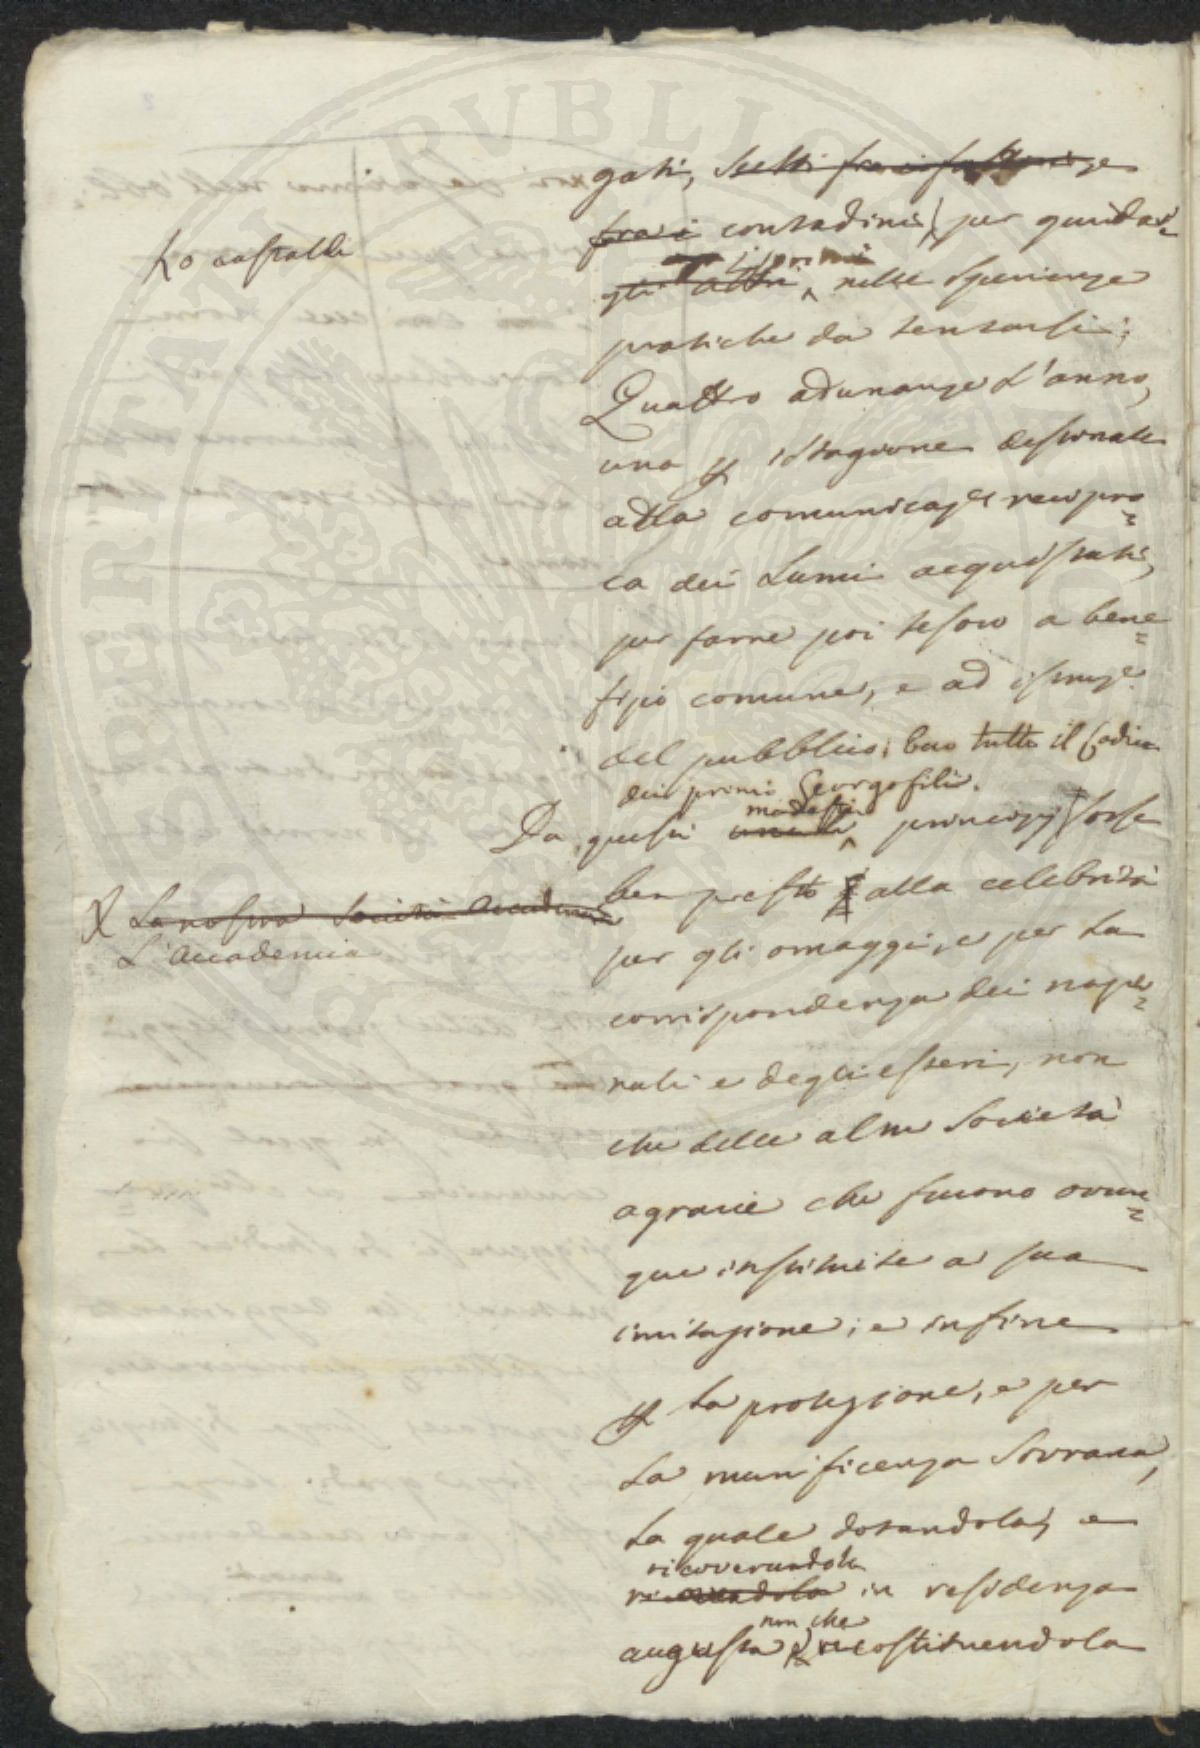 gati, scelti fra i
fra i contadini per guidar
gli altri i primi nelle sperienze
pratiche da tentarsi;
Quattro adunanze l'anno,
una p stagione destinate
alla comunicaze recipro=
ca dei Lumi acquistati,
per farne poi tesoro a bene=
fizio comune, e ad istruze
del pubblico; ecco tutto il Codice
dei primi Georgofili.
Da questi modesti principj sorse
ben presto alla celebrità
per gli omaggi, e per la
corrispondenza dei nazio=
nali e degli esteri, non
che delle altre Società
agrarie che furono ovun=
que instituite a sua
imitazione; e infine
p la protezione, e per
la munificenza Sovrana,
la quale dotandola, e
ricoverandola
in residenza
augusta, non che ricostituendola
Lo castaldi
X La nostra Società Accademica
L'Accademia
PVBLICAE